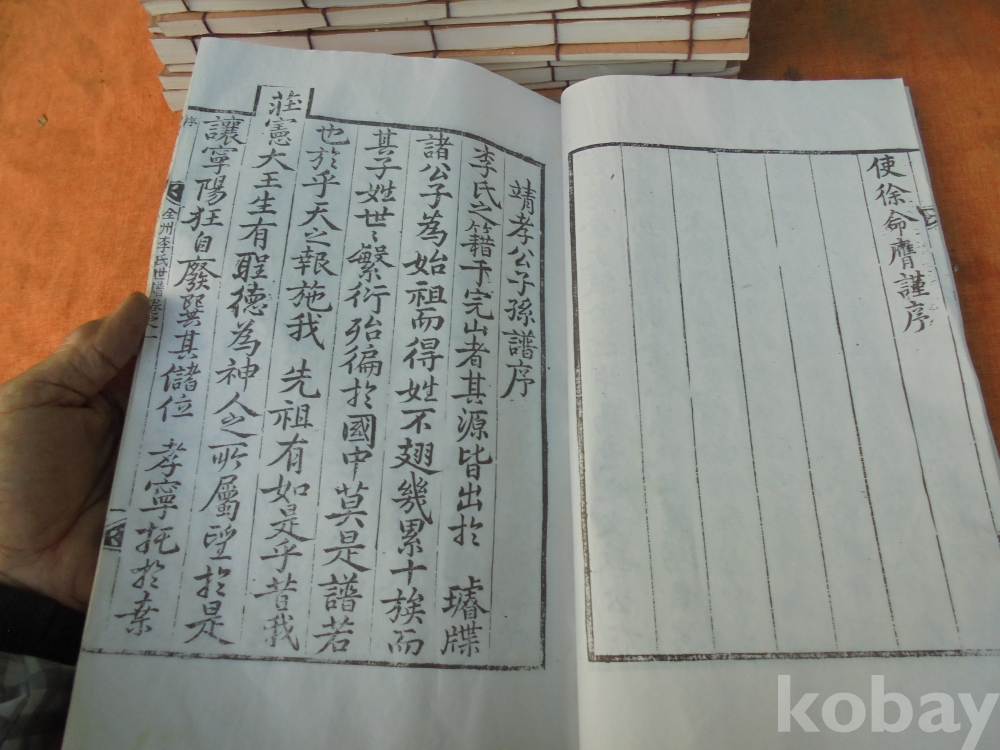 使徐命膺謹序
靖孝公子孫譜序
李氏之籍于完山者其源皆出於 璿牒
諸公子爲始祖而得姓不翅幾累十族而
其子姓世〻繁衍殆徧於國中莫是譜若
也於乎天之報施我 先祖有如是乎昔我
莊憲大王生有聖德為神人之所屬望於是
讓寧陽狂自廢巽其儲位 孝寧托於棄
序
全州李氏世譜卷之一
一
kobay